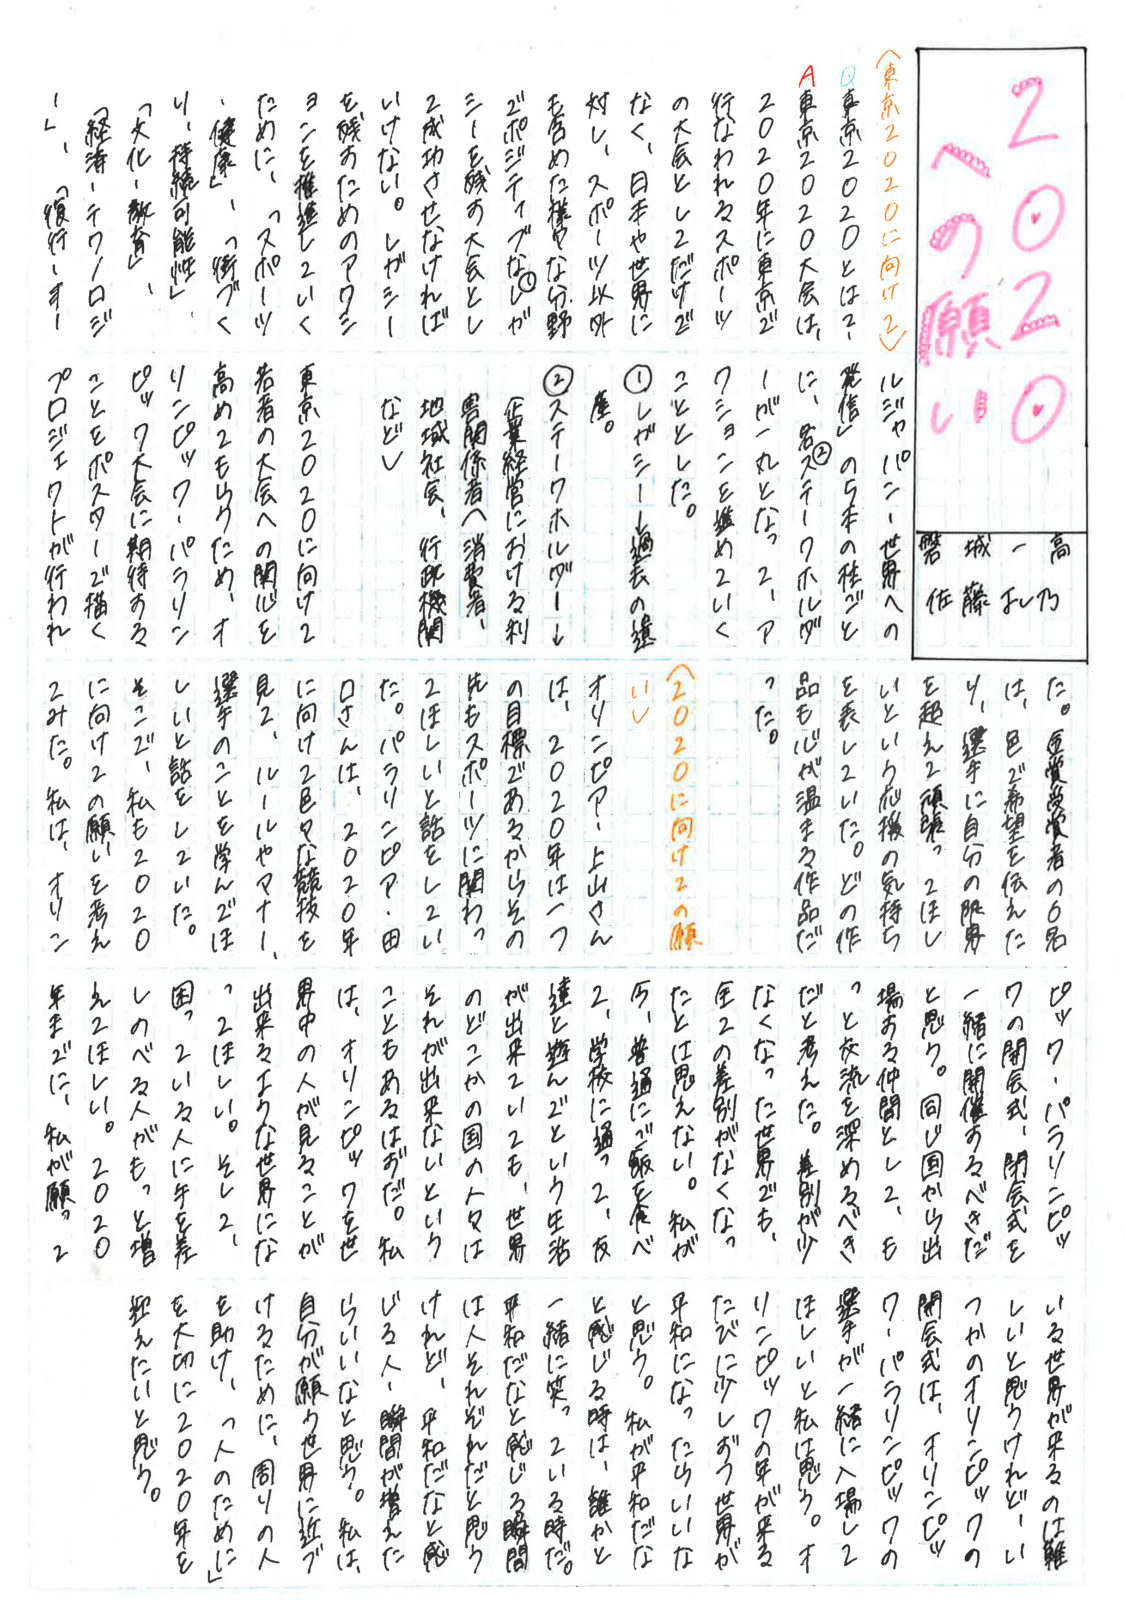 2020
への願い
磐城一高
佐藤よし乃
〈東京2020に向けて〉
Q東京2020とは?、
A東京2020大会は、
2020年に東京で
行なわれるスポーツ
の大会としてだけで
なく、日本や世界に
対し、スポーツ以外
も含めた様々な分野
でポジティブな①レガ
シーを残す大会とし
て成功させなければ
いけない。レガシー
を残すためのアクシ
ョンを推進していく
ために、「スポーツ
・健康」、「街づく
り・持続可能性」、
「文化・教育」、
「経済・テクノロジ
ー」、「復行・オー
ルジャパン・世界への
発信」の5本の柱ごと
に、各②ステークホルダ
ーが一丸となって、ア
クションを進めていく
こととした。
①レガシー…過去の遺
産。
②ステークホルダー…
企業経営における利
害関係者〈消費者、
地域社会、行政機関
など〉
東京2020に向けて
若者の大会への関心を
高めてもらうため、オ
リンピック・パラリン
ピック大会に期待する
ことをポスターで描く
プロジェクトが行われ
た。金賞受賞者の6名
は、色で希望を伝えた
り、選手に自分の限界
を超えて頑張ってほし
いという応援の気持ち
を表していた。どの作
品も心が温まる作品だ
った。
〈2020に向けての願
い〉
オリンピア・上山さん
は、2020年は一つ
の目標であるからその
先もスポーツに関わっ
てほしいと話をしてい
た。パラリンピア・田
口さんは、2020年
に向けて色々な競技を
見て、ルールやマナー、
選手のことを学んでほ
しいと話をしていた。
そこで、私も2020
に向けての願いを考え
てみた。私は、オリン
ピック・パラリンピッ
クの開会式、閉会式を
一緒に開催するべきだ
と思う。同じ国から出
場する仲間として、も
っと交流を深めるべき
だと考えた。差別が少
なくなった世界でも、
全ての差別がなくなっ
たとは思えない。私が
今、普通にご飯を食べ
て、学校に通って、友
達と遊んでという生活
が出来ていても、世界
のどこかの国の人々は
それが出来ないという
こともあるはずだ。私
は、オリンピックを世
界中の人が見ることが
出来るような世界にな
ってほしい。そして、
困っている人に手を差
しのべる人がもっと増
えてほしい。2020
年までに、私が願って
いる世界が来るのは難
しいと思うけれど…い
つかのオリンピックの
開会式は、オリンピッ
ク・パラリンピックの
選手が一緒に入場して
ほしいと私は思う。オ
リンピックの年が来る
たびに少しずつ世界が
平和になったらいいな
と思う。私が平和だな
と感じる時は、誰かと
一緒に笑っている時だ。
平和だなと感じる瞬間
は人それぞれだと思う
けれど、平和だなと感
じる人・瞬間が増えた
らいいなと思う。私は、
自分が願う世界に近づ
けるために、周りの人
を助け、「人のために」
を大切に2020年を
迎えたいと思う。